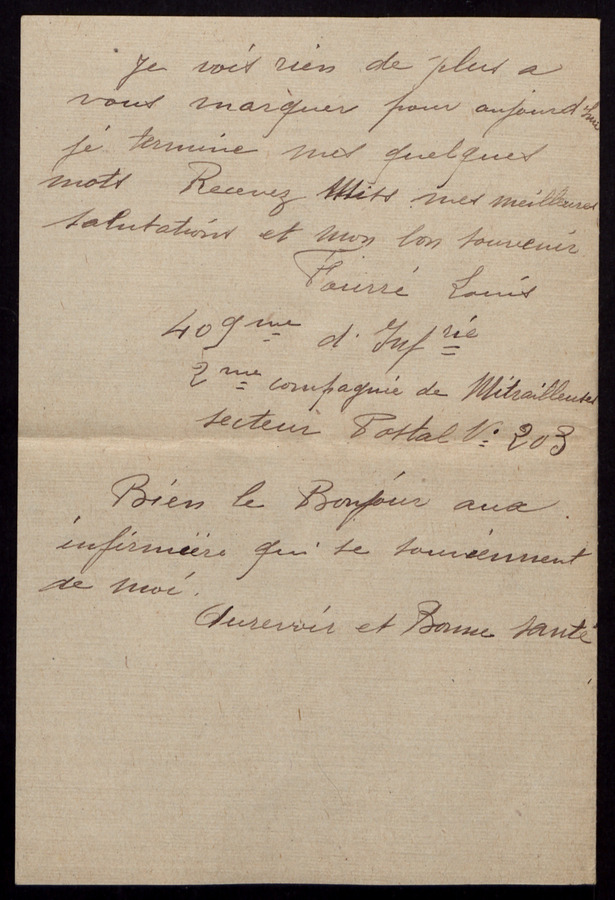 Je vois rien de plus a
vous marquer pour aujourd'hui
je termine mes quelques
mots Recevez Miss mes meilleures
salutations et mon bon souvenir
Fourré Louis
409me d'Infrie
2me compagnie de Mitrailleuses
secteur Postal No 203
Bien le Bonjour aux
infirmière qui se souviennent
de moi.
Aurevoir et Bonne santé